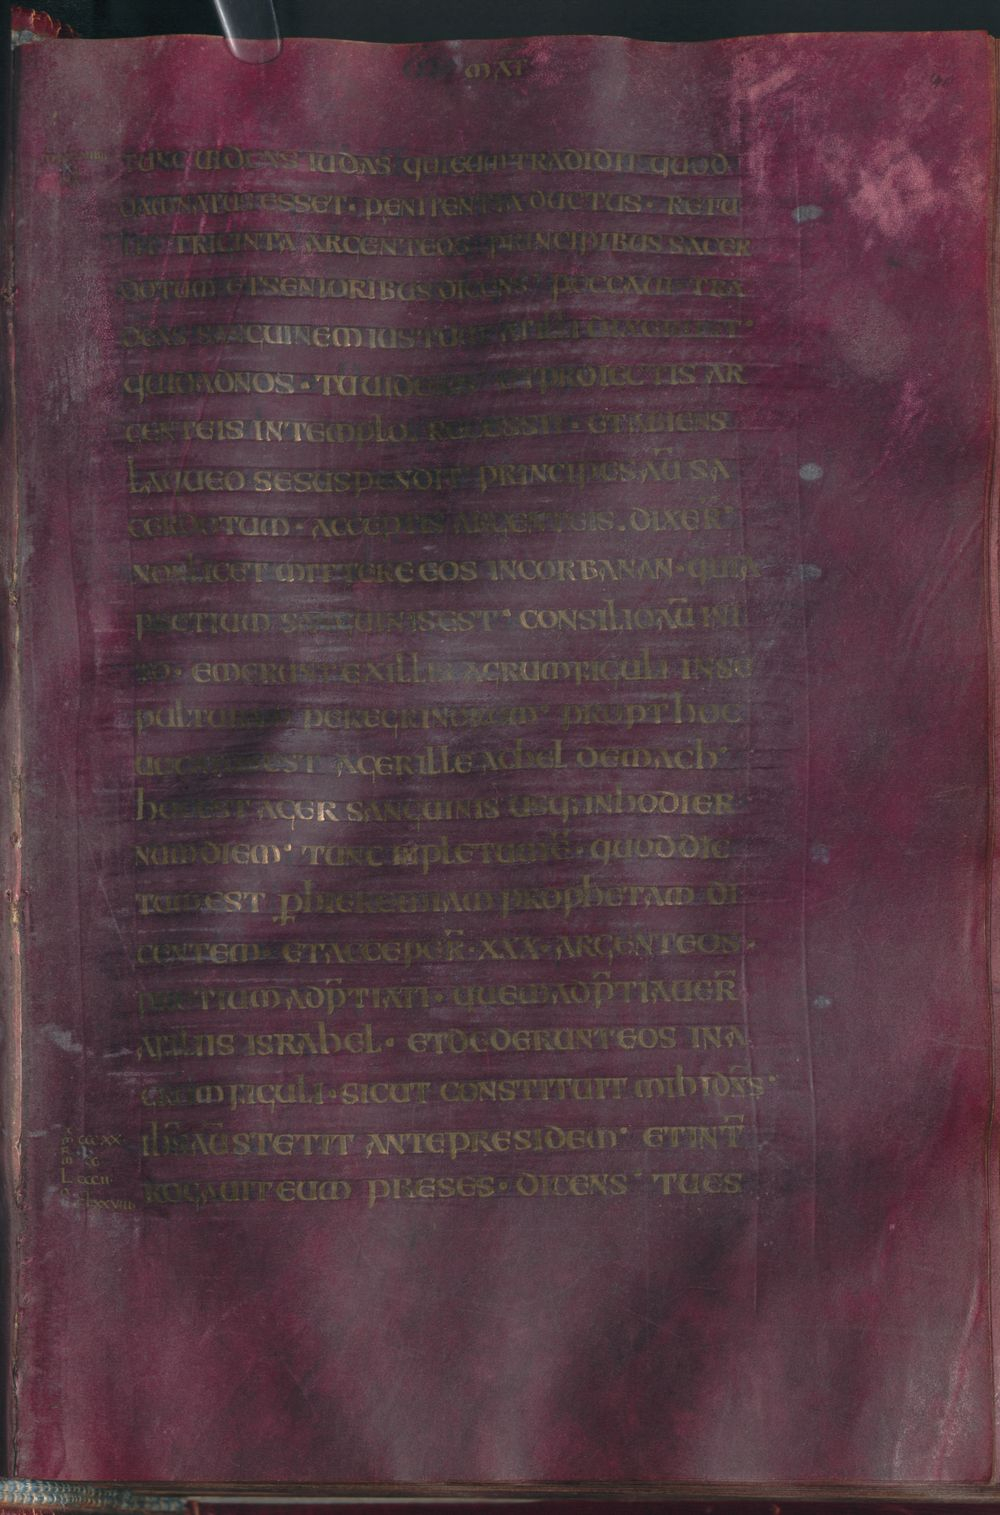 MAT
TUNC UIDENS IUDAS QUI EUM TRADIDIT QUOD
DAMNATUS ESSET · PENITENTIA DUCTUS · RETU
LIT TRIGINTA ARGENTEOS PRINCIPIBUS SACER
DOTUM ET SENIORIBUS DICENS PECCAUI TRA
DENS SANGUINEM IUSTUM
QUID AD NOS · TŪ UIDERIS ET PROIECTIS AR
GENTEIS IN TEMPLO RECESSIT · ET ABIENS
LAQUEO SE SUSPENDIT PRINCIPES AŪ SA
CERDOTUM · ACCEPTIS ARGENTEIS . DIXER̄
NON LICET MITTERE EOS IN CORBANAN · QUIA
PRETIUM SANGUINIS EST · CONSILIO AŪ INI
TO · EMERUNT EX ILLIS AGRUM FIGULI IN SE
PULTURAM PEREGRINORUM · PROPT̄ HOC
UOCATUS EST AGER ILLE ACHEL DEMACH ·
HOC EST AGER SANGUINIS USQ; IN HODIER
NUM DIEM · TUNC IMPLETUM Ē · QUOD DIC
TUM EST PER HIEREMIAM PROPHETAM DI
CENTEM · ET ACCEPER̄ · XXX · ARGENTEOS ·
PRETIUM ADP̄TIATI · QUEM ADP̄TIAUER̄
A FILIIS ISRAHEL · ET DEDERUNT EOS IN A
GRUM FIGULI · SICUT CONSTITUIT MIHI DN̄S ·
IH̄S AŪ STETIT ANTE PRESIDEM · ET INT̄
M CCCXX
L CCCII
ROGAUIT EUM PRESES · DICENS TU ES